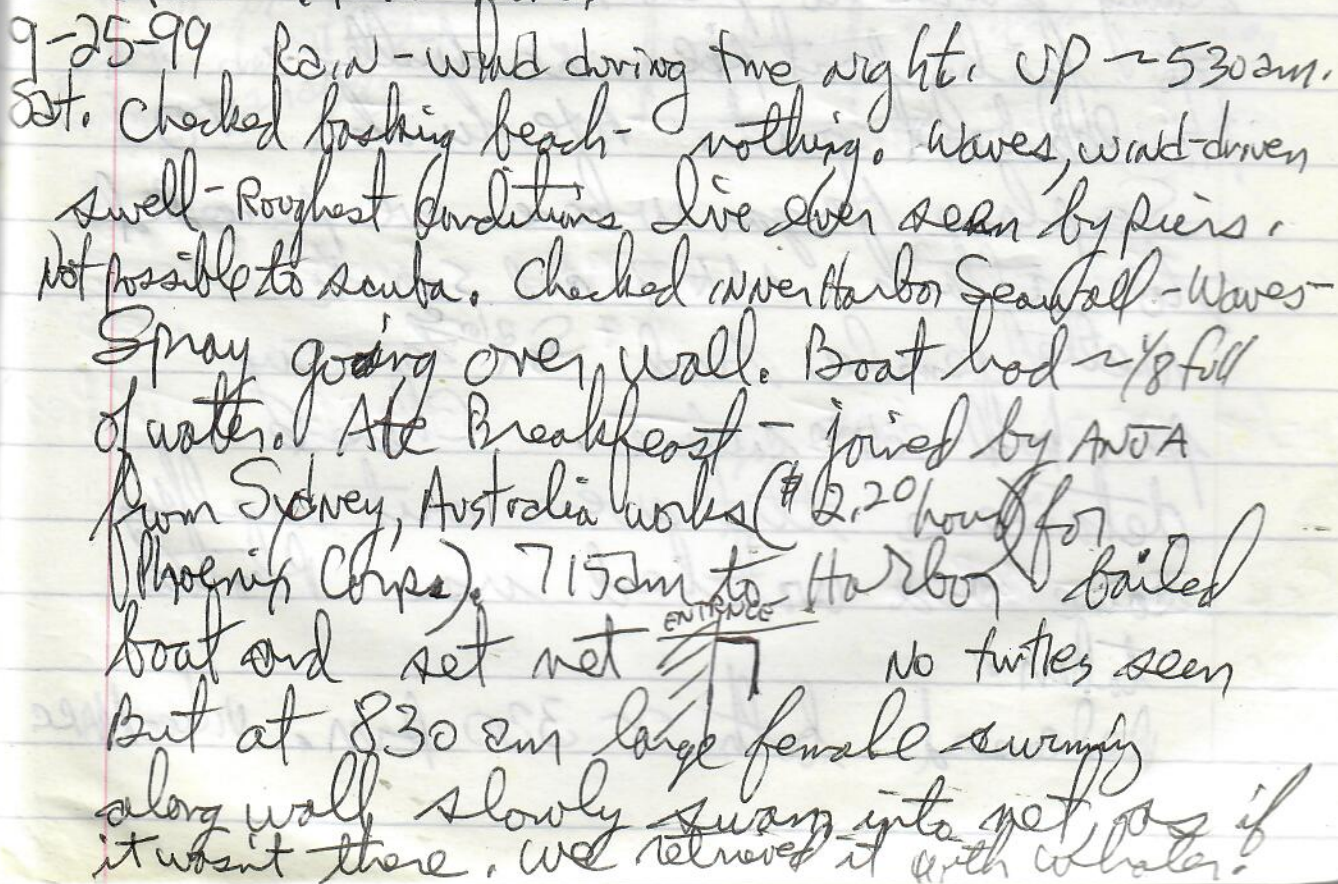 9-25-99 Rain-wind during the night. Up ~530am.
Sat. Checked basking beach- nothing. Waves, wind-driven
swell-Roughest Conditions I've ever seen by piers.
Not possible to scuba. Checked inner Harbor Seawall-Waves-
Spray going over wall. Boat had ~1/8 full
of water. Ate Breakfeast - joined by ANJA
from Sydney, Australia works ($2.20 hour) for
(Phoenix Corps). 715am to Harbor bailed
ENTRNCE
boat and set net No turtles seen
But at 830am large female swimming
along wall slowly swam into net, as if
it wasn't there. We retrieved it with whaler.